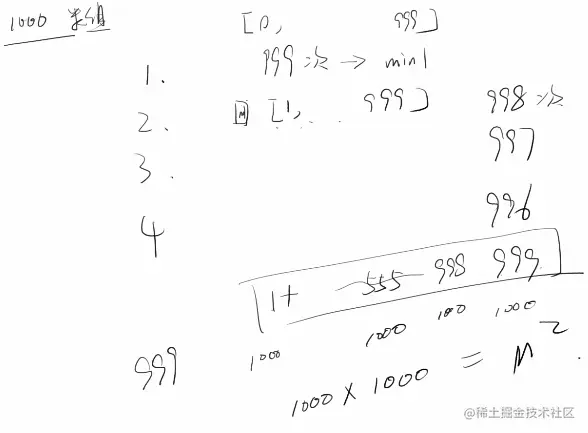 1000 数组
[0, 999]
1. 999次 → min1
2. M [1, ... 999] 998次
3. 997
4 996
1+ 555 998 999
1000 1000 1000 1000
999
1000 × 1000 = M²
@稀土掘金技术社区